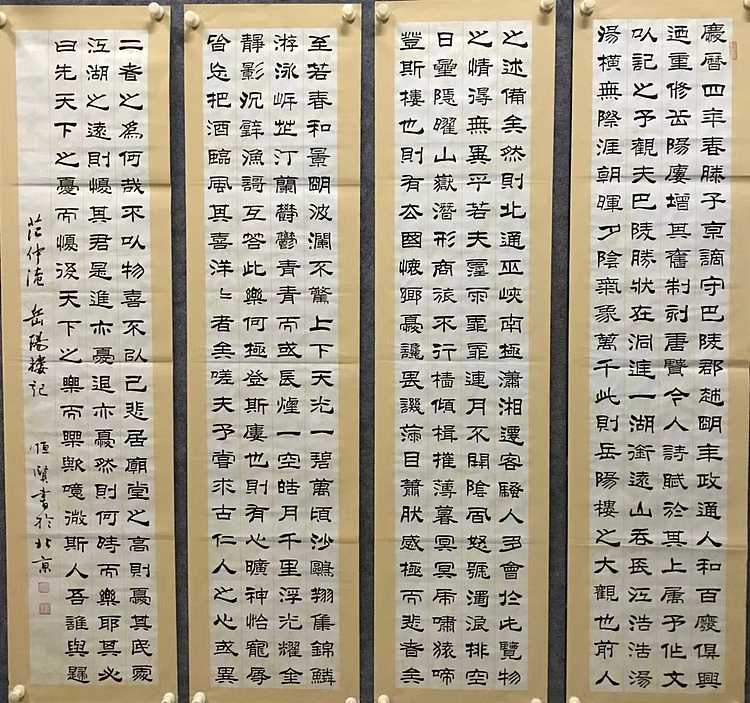 慶曆四年春滕子京謫守巴陵郡越明年政通人和百廢俱興
迺重修岳陽樓增其舊制刻唐賢今人詩賦於其上屬予作文
以記之予觀夫巴陵勝狀在洞庭一湖銜遠山吞長江浩浩湯
湯橫無際涯朝暉夕陰氣象萬千此則岳陽樓之大觀也前人
之述備矣然則北通巫峽南極瀟湘遷客騷人多會於此覽物
之情得無異乎若夫霪雨霏霏連月不開陰風怒號濁浪排空
日星隱曜山嶽潛形商旅不行檣傾楫摧薄暮冥冥虎嘯猿啼
登斯樓也則有去國懷鄉憂讒畏譏滿目蕭然感極而悲者矣
至若春和景明波瀾不驚上下天光一碧萬頃沙鷗翔集錦鱗
游泳岸芷汀蘭鬱鬱青青而或長煙一空皓月千里浮光耀金
靜影沉璧漁歌互答此樂何極登斯樓也則有心曠神怡寵辱
皆忘把酒臨風其喜洋〻者矣嗟夫予嘗求古仁人之心或異
二者之為何哉不以物喜不以己悲居廟堂之高則憂其民處
江湖之遠則憂其君是進亦憂退亦憂然則何時而樂耶其必
曰先天下之憂而憂後天下之樂而樂歟噫微斯人吾誰與歸
范仲淹 岳陽樓記 恒賢書於北京